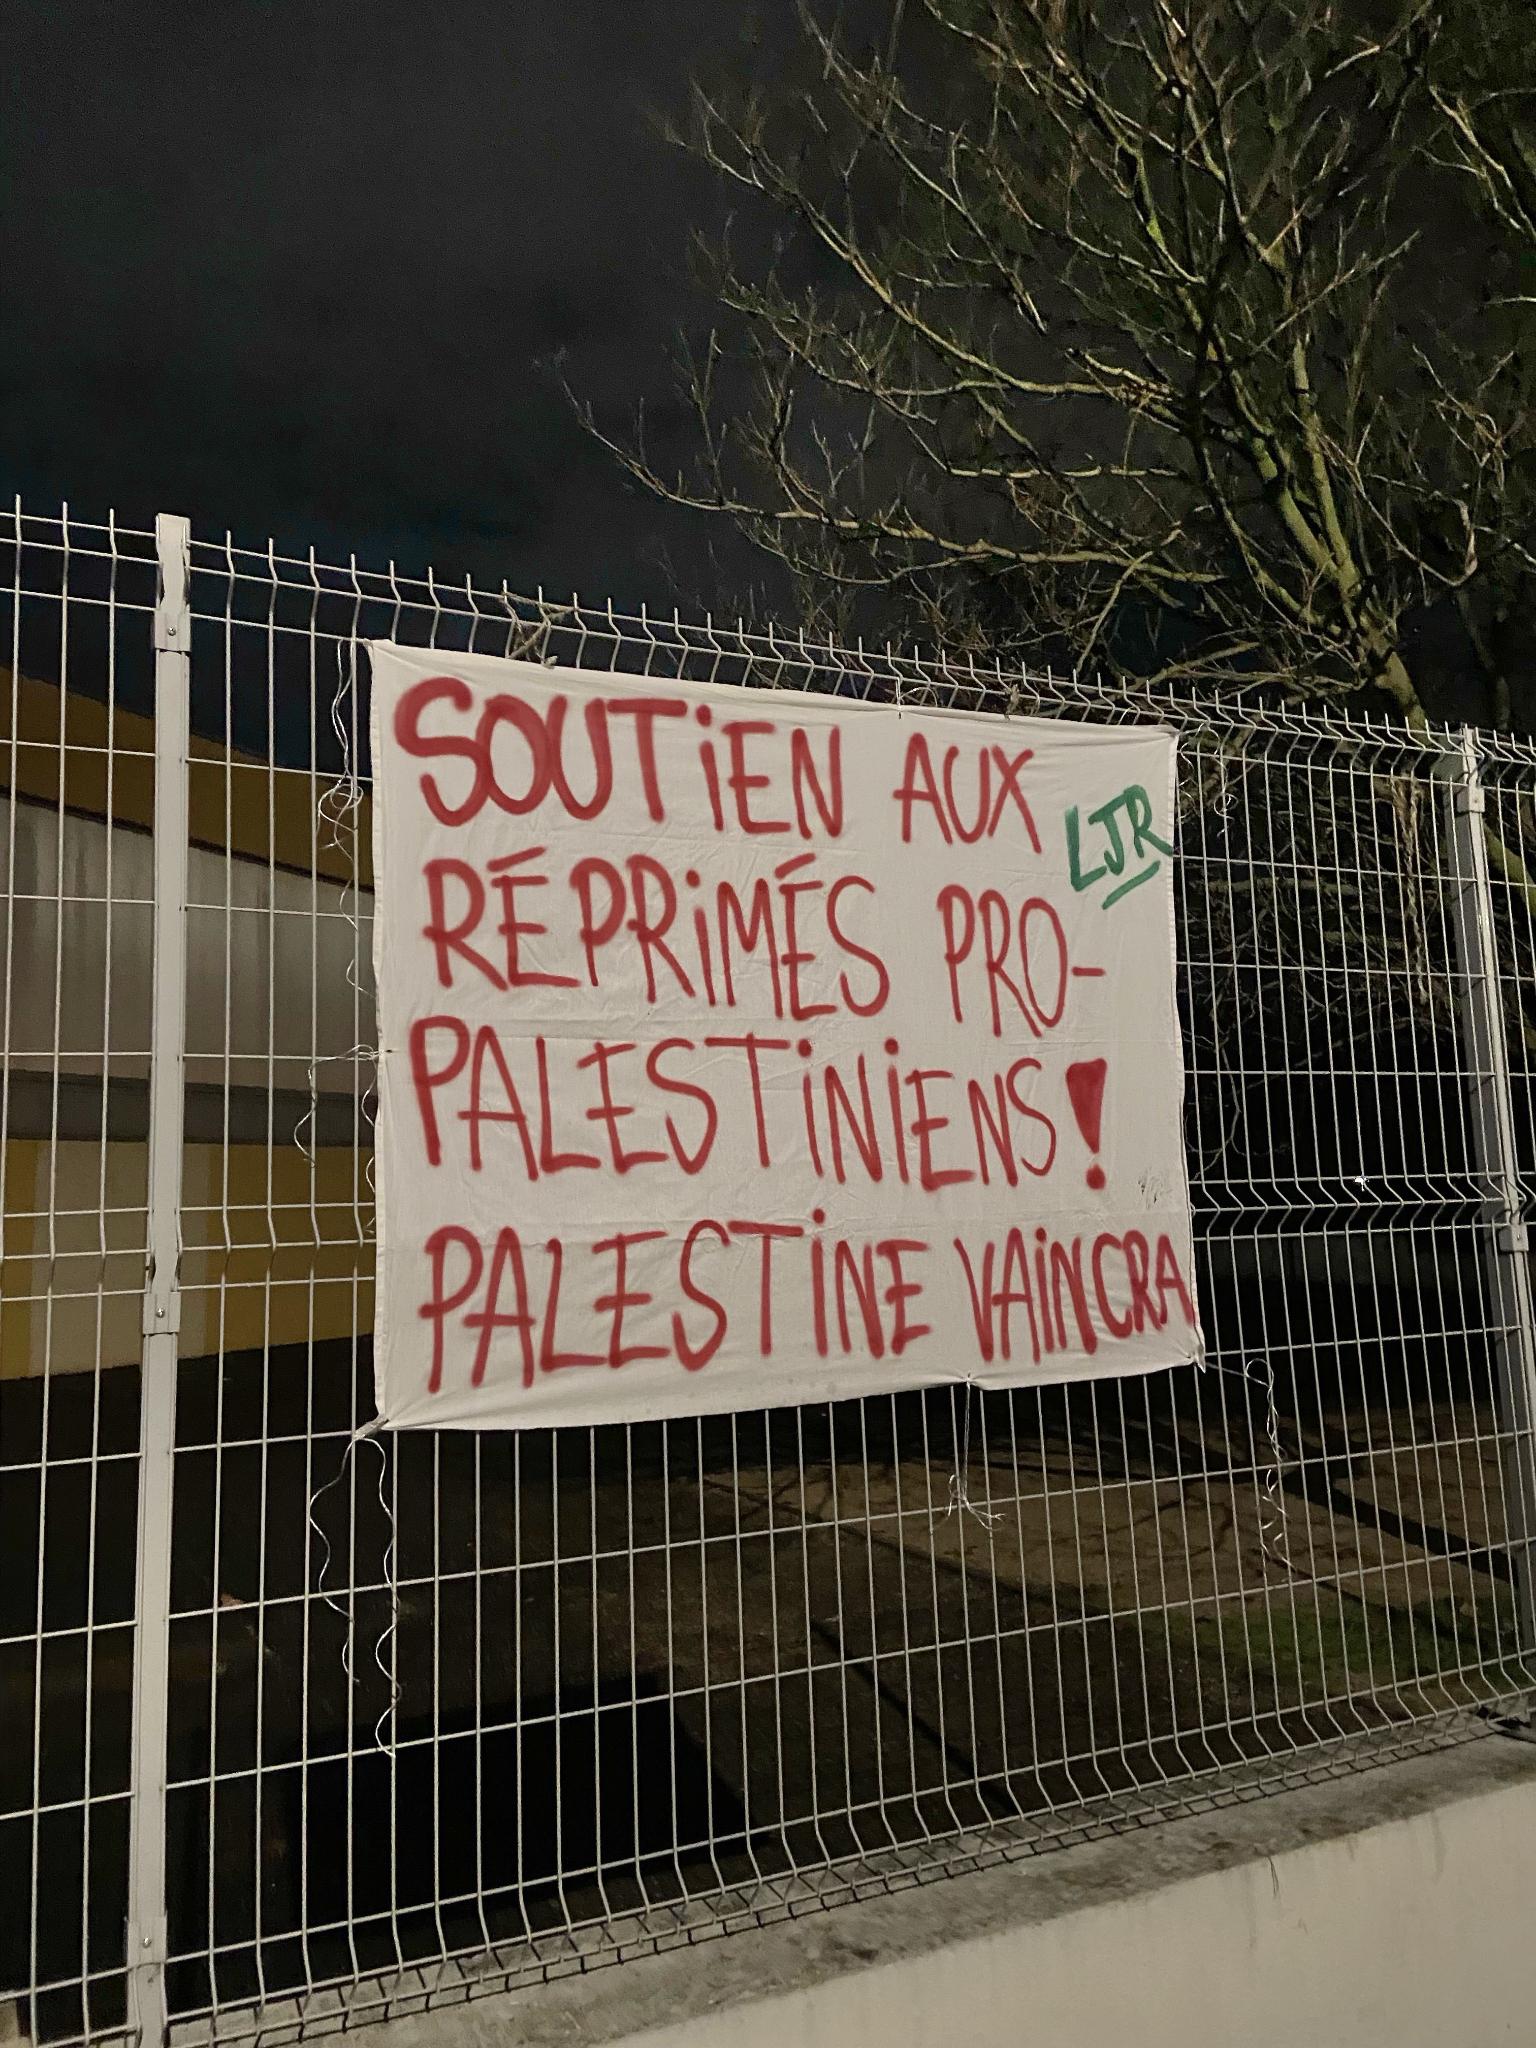 SOUTiEN AUX
LJR
RÉPRiMÉS PRO-
PALESTiNiENS!
PALESTiNE VAiNCRA